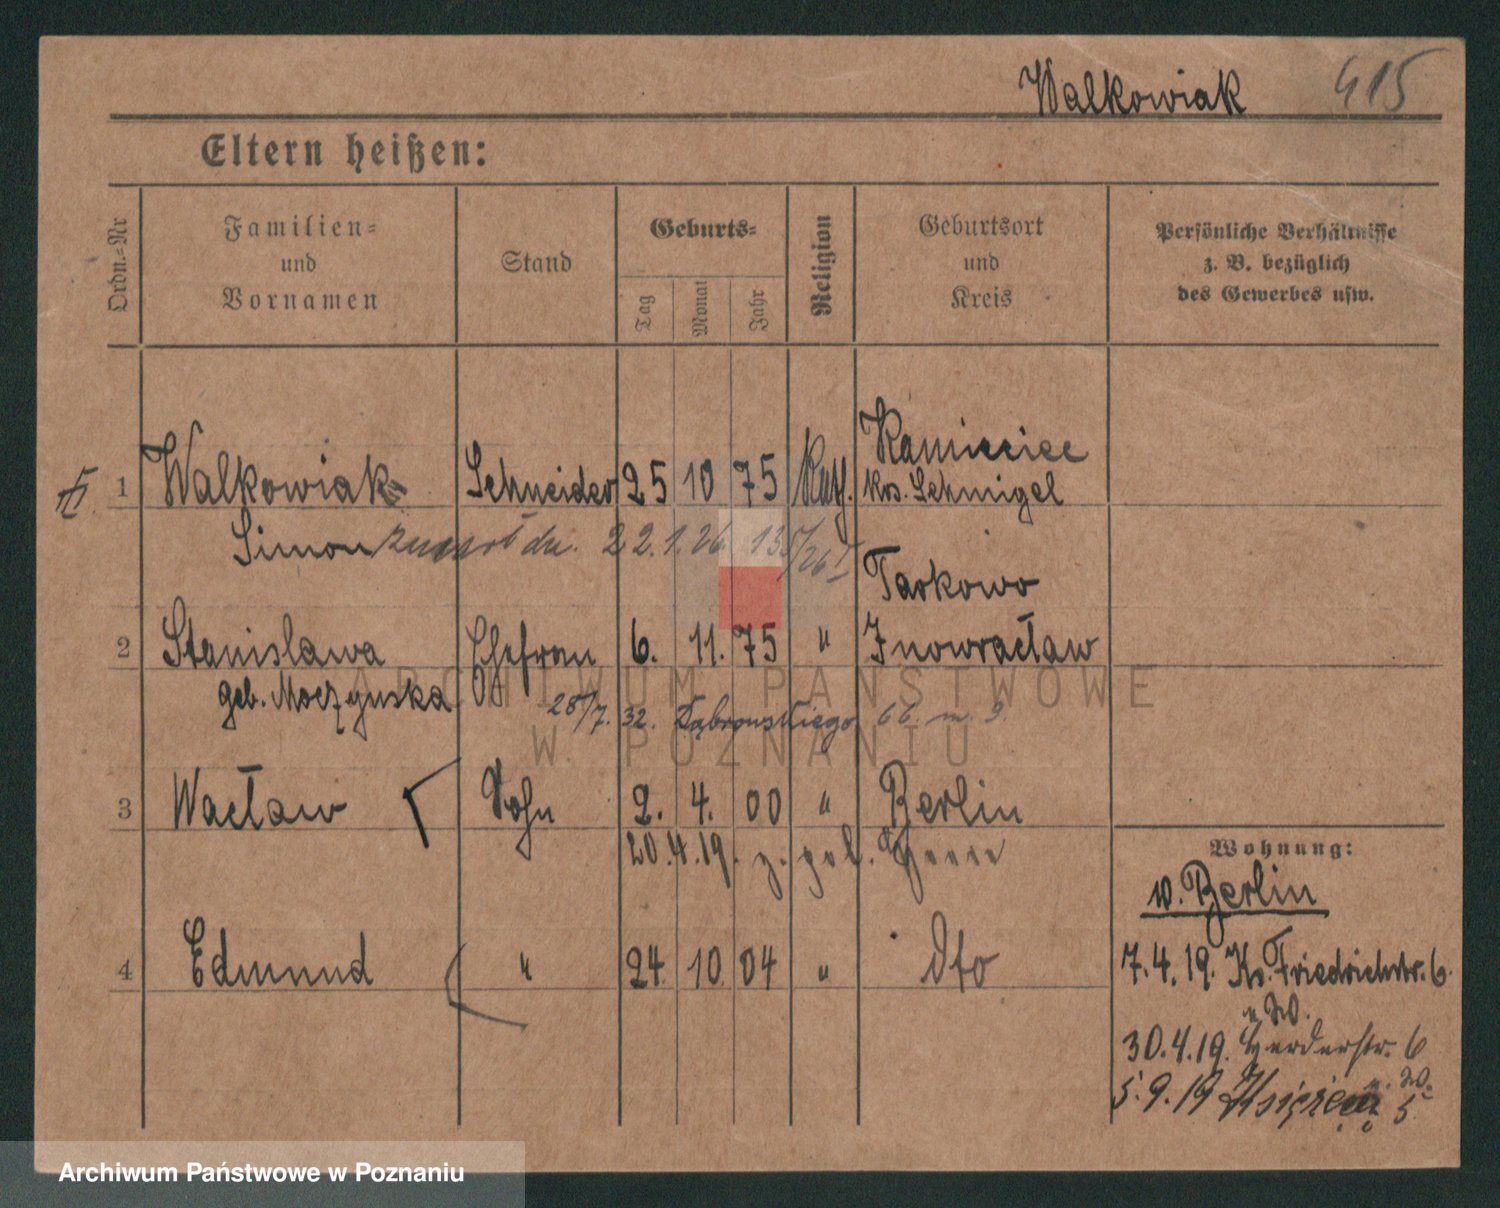 Walkowiak 415
Eltern heißen:
Ordn.-Nr
Familien-
und
Vornamen
Stand
Geburts-
Tag
Monat
Jahr
Religion
Geburtsort
und
Kreis
Persönliche Verhältnisse
z. B. bezüglich
des Gewerbes usw.
1 Walkowiak Schneider 25 10 75 Kath. Kamieniec
Krs. Schmigel
Simon zmarł dn. 22.1.26 135/26 I
2 Stanisława Ehefrau 6. 11. 75 " Tarkowo
Inowracław
geb. Moczynska
28/7. 32. Dąbrowskiego 66. m. 9.
3 Wacław Sohn 2. 4. 00 " Berlin
20.4.19. z. pol.
4 Edmund " 24 10 04 " dto
Wohnung:
v. Berlin
7.4.19. Ks. Friedrichstr. 6.
b. W.
30.4.19. Herderstr. 6
b. W.
5.9.19 5
ARCHIWUM PAŃSTWOWE
W POZNANIU
Archiwum Państwowe w Poznaniu